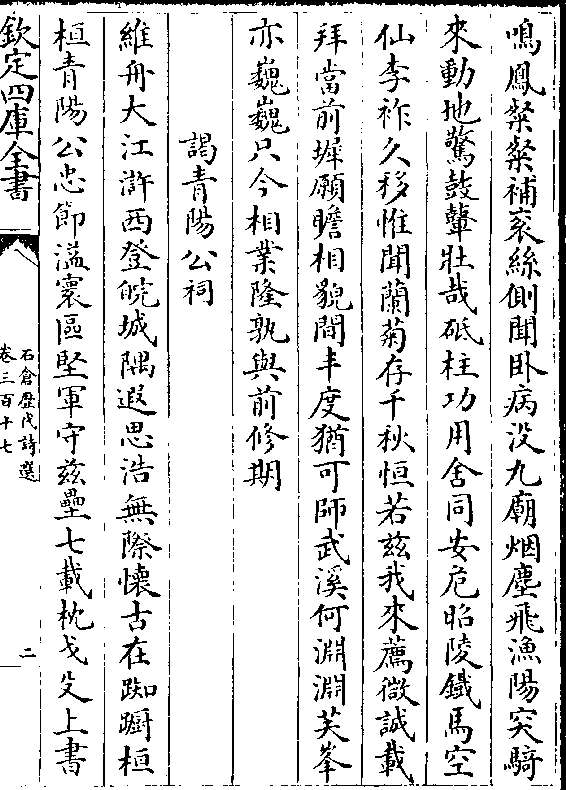 鳴鳳粲粲補衮絲側聞卧病没九廟烟塵飛漁陽突騎
來動地驚鼓鼙壮哉砥柱功用舍同安危昭陵鐵馬空
仙李祚久移惟聞蘭菊存千秋恒若兹我來薦微誠載
拜當前墀願瞻相貌間丰度猶可師武溪何淵淵芙峯
亦巍巍只今相業隆孰與前修期
謁青陽公祠
維舟大江滸西登皖城隅遐思浩無際懐古在踟蹰桓
桓青陽公忠節溢寰區堅軍守兹壘七載枕戈殳上書
欽定四庫全書
石倉歴代詩選
卷三百十七
二